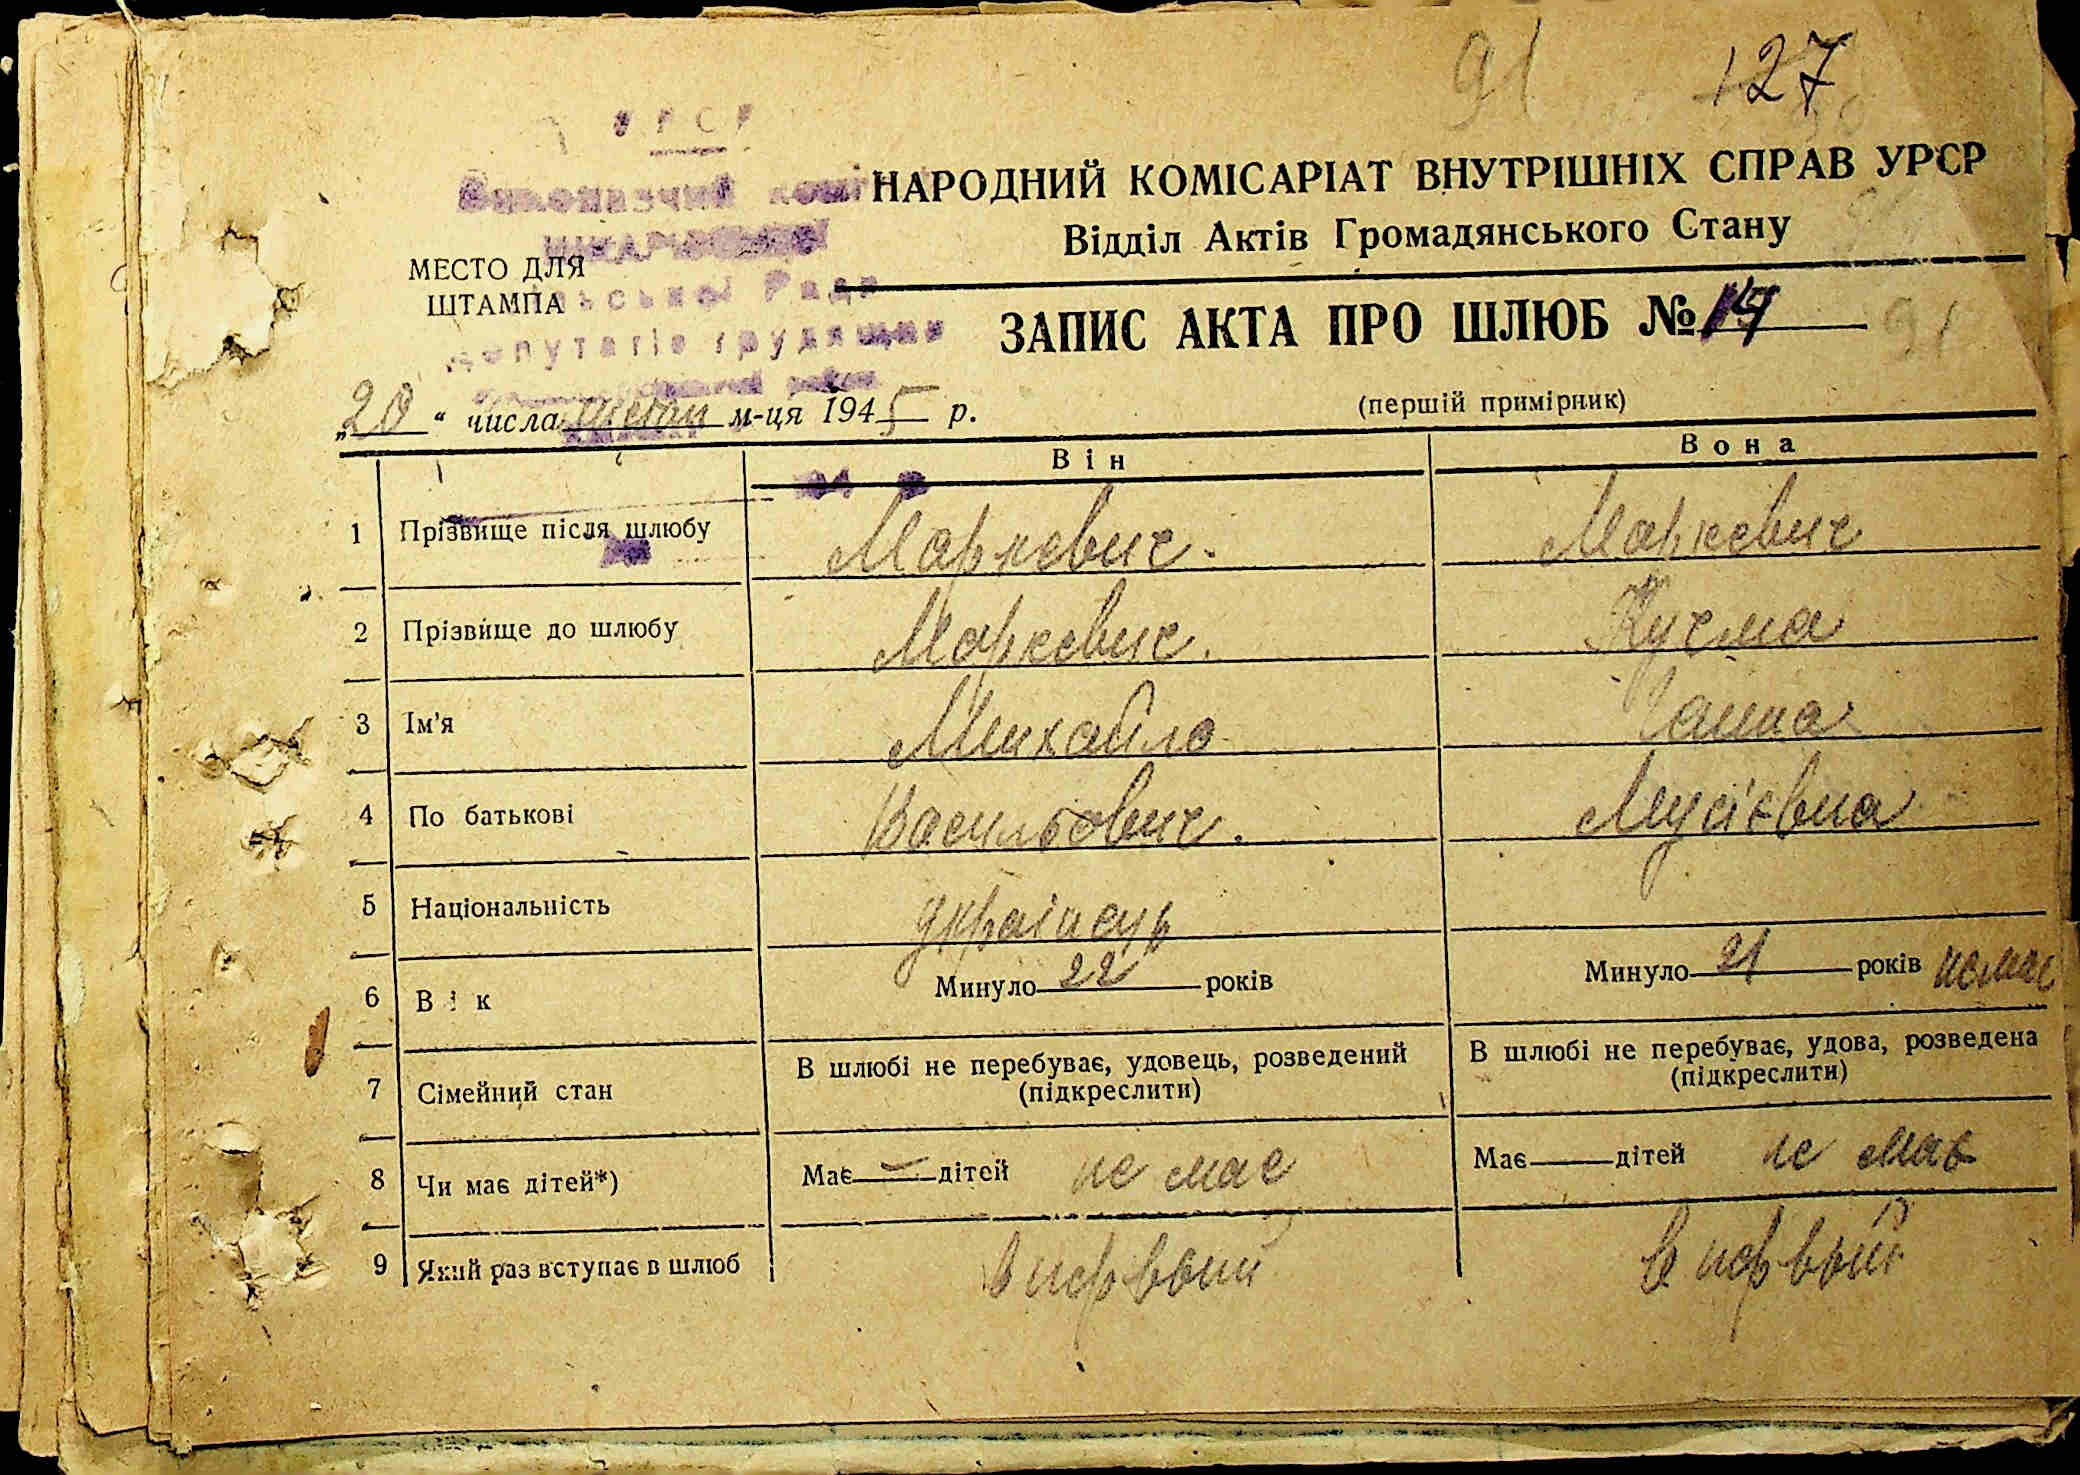 91 127
УРСР
Виконавчий комі
НАРОДНИЙ КОМІСАРІАТ ВНУТРІШНІХ СПРАВ УРСР
Відділ Актів Громадянського Стану
МЕСТО ДЛЯ
ШТАМПА
Ради
депутатів трудящих
ЗАПИС АКТА ПРО ШЛЮБ № 14 91
(першій примірник)
„20“ числа м-ця 1945 р.
Він Вона
1 Прізвище після шлюбу Маркевич. Маркевич
2 Прізвище до шлюбу Маркевич. Кучма
3 Ім'я Михайло Ганна
4 По батькові Васильович. Мусієвна
5 Національність українець
6 Вік Минуло 22 років Минуло 21 років немає
7 Сімейний стан В шлюбі не перебуває, удовець, розведений (підкреслити) В шлюбі не перебуває, удова, розведена (підкреслити)
8 Чи має дітей*) Має — дітей не має Має дітей не має
9 Який раз вступає в шлюб в первый в первый